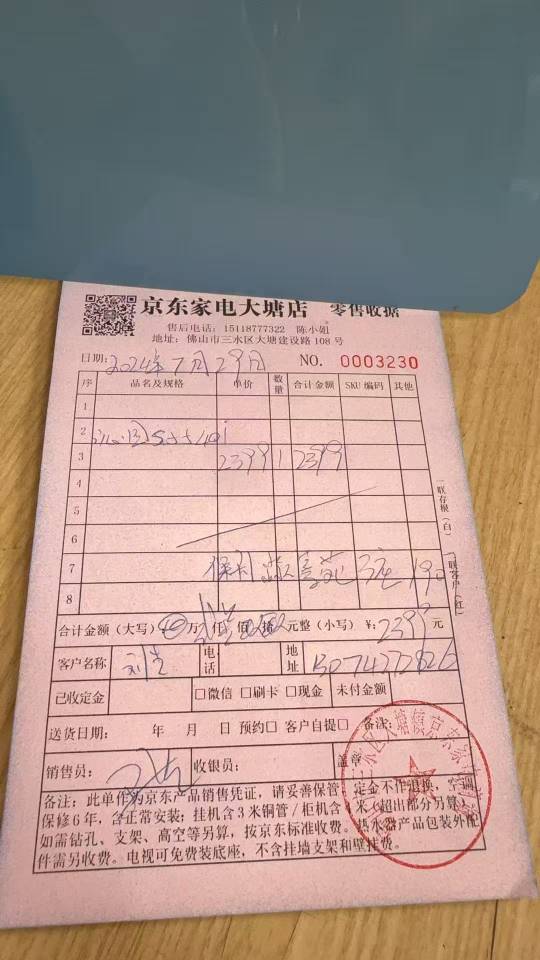 京东家电大塘店 零售收据
售后电话：15118777322 陈小姐
地址：佛山市三水区大塘建设路 108 号
日期：2024年7月29日 NO. 0003230
序 品名及规格 单价 数量 合计金额 SKU 编码 其他
1
2
3 2399 1 2399
4
5
6
7
8
一联存根（白）
二联客户（红）
合计金额（大写） 万 仟 佰 拾 元整（小写）¥：2399 元
客户名称 电话 地址
已收定金 □微信 □刷卡 □现金 未付金额
送货日期： 年 月 日 预约□ 客户自提□ 备注：
销售员： 收银员： 盖章：
备注：此单作为京东产品销售凭证，请妥善保管，定金不作退换，空调
保修 6 年，含正常安装；挂机含 3 米铜管／柜机含 4 米（超出部分另算）
如需钻孔、支架、高空等另算，按京东标准收费。热水器产品包装外配
件需另收费。电视可免费装底座，不含挂墙支架和壁挂费。